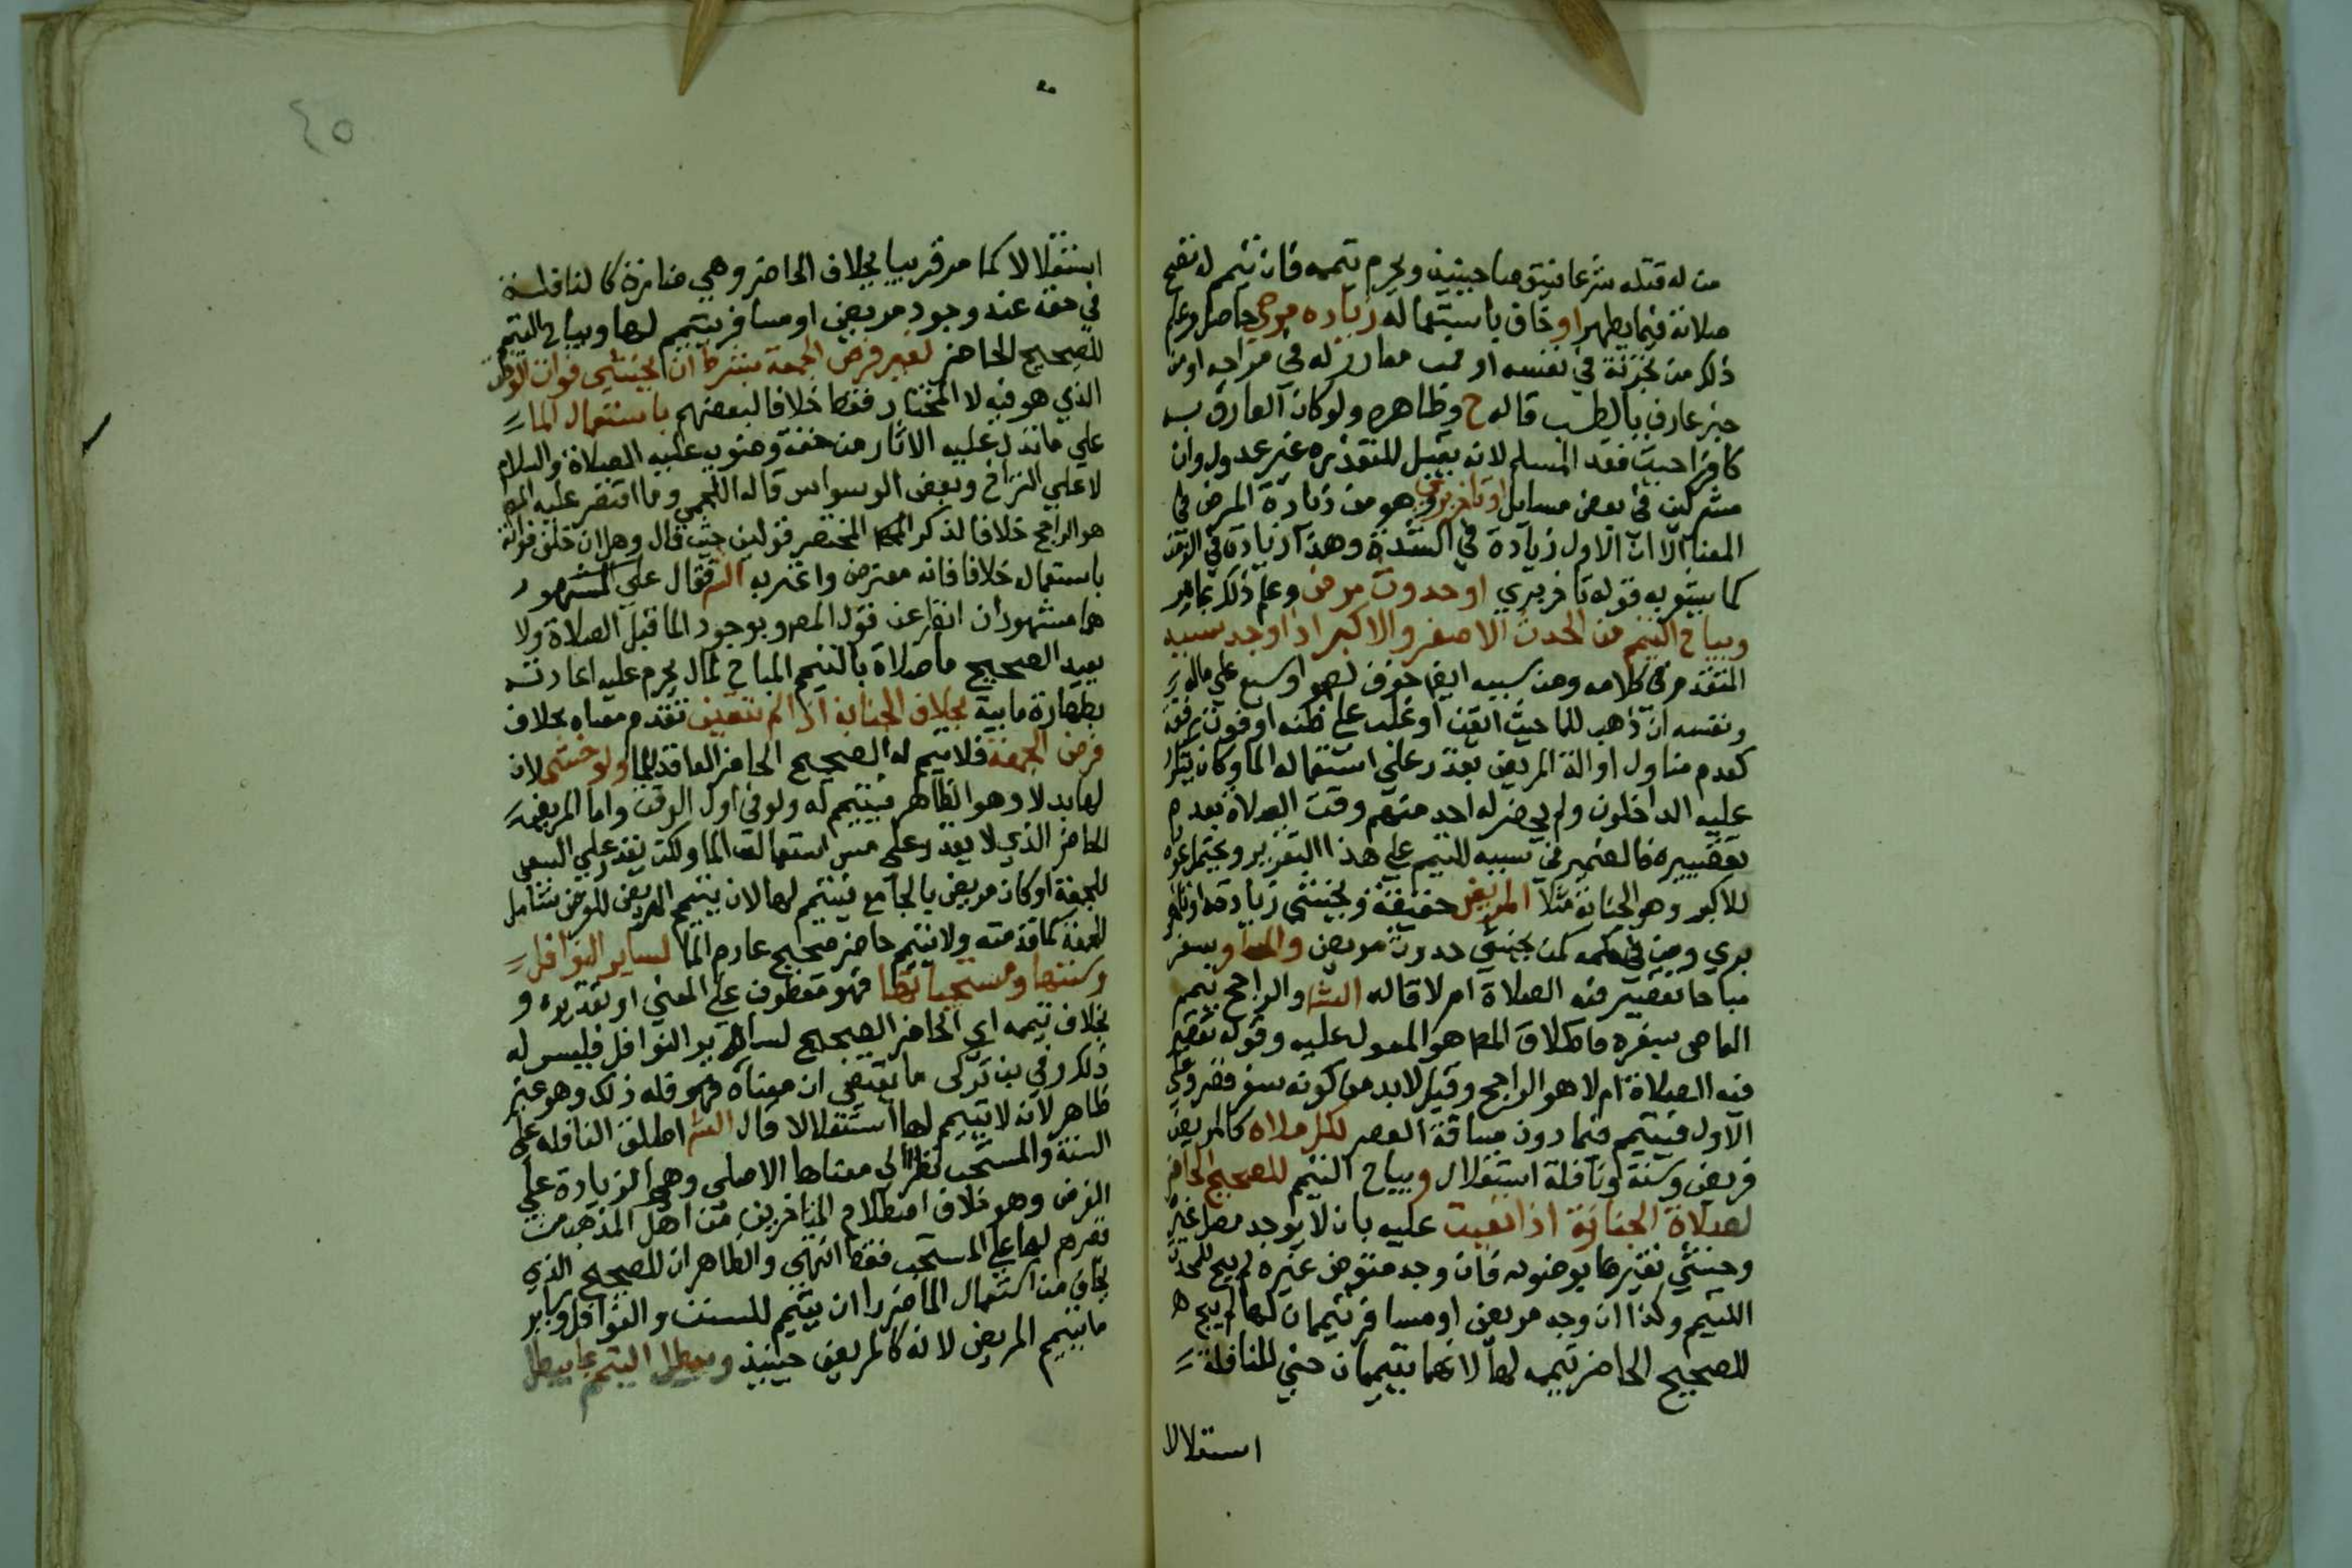 من له قتله شرعا فيتوضا حينئذ ويحرم تيممه فان تيمم لم تصح
صلاته فيما يظهر او خاف باستعماله زياده مرض حاصل وعلم
ذلك من تجربة في نفسه او من مقارب له في مزاجه او من
خبر عارف بالطب قاله ح وظاهره ولو كان العارف به
كافرا حيث فقد المسلم لانه يقبل للتعذر غير عدول وان
مشركين في بعض مسايل او تاخر برئ وهو من زيادة المرض في
المعنا الا ان الاول زيادة في الشدة وهذا زيادة في الزمن
كما يشعر به قوله تاخر بري او حدوث مرض وعلم ذلك بما مر
ويباح التيمم من الحدث الاصغر والاكبر اذا وجد سببه
المتقدم في كلامه ومن سببه ايضا خوف لص او سبع على ماله
ونفسه ان ذهب للما حيث اتقن او غلب على ظنه او فوت رفقة
كعدم مناول او الة المريض يقدر على استعماله الما وكان يتكرر
عليه الداخلون ولم يحضر له احد منهم وقت الصلاة بعدم
تقصيره فالضمير في سببه للتيمم على هذا التقرير ويحتمل عوده
للاكبر وهو الجنابة مثلا المريض حقيقة ويخشى زيادته او تاخر
بري ومن في حكمه كمن يخشى حدوث مرض والمسافر سفر
مباحا تقصر فيه الصلاة ام لا قاله الش والراجح تيمم
العاصي بسفره فاطلاق المص هو المعول عليه وقوله تقصر
فيه الصلاة ام لا هو الراجح وقيل لا بد من كونه سفر قصر وعلى
الاول فيتيمم فيما دون مسافة القصر لكل صلاه كالمريض
فرض وسنة ونافلة استقلال ويباح التيمم للصحيح الحاضر
لصلاة الجنازة اذا تعينت عليه بان لا يوجد مصل غيره
وخشي تغيرها بوضوئه فان وجد متوض غيره لم يبح للمحدث
التيمم وكذا ان وجد مريض او مسافر تيممان لها لم يبح
للصحيح الحاضر تيممه لها لانهما يتيممان حتي للنافلة
استقلالا
٤٥
استقلالا كما مر قريبا بخلاف الحاضر وهي جنازة كالنافلة
في حقه عند وجود مريض او مسافر يتيمم لها ويباح التيمم
للصحيح الحاضر لغير فرض الجمعة بشرط ان يخشي فوات الوقت
الذي هو فيه لا المختار فقط خلافا لبعضهم باستعمال الما
علي ما تدل عليه الاثار من خفة وضويه عليه الصلاة والسلام
لا علي التراخي وبعض الوسواس قاله اللخمي وما اقتصر عليه المص
هو الراجح خلافا لذكر المختصر قولين حيث قال وهل ان خاف فواته
باستعماله خلافا فانه معترض واغتر به الش فقال علي المشهور
هما مشهوران انظر عن قول المص وبوجود الما قبل الصلاة ولا
يعيد الصحيح ما صلاه بالتيمم المباح له بل يحرم عليه اعادته
بطهارة مايية بخلاف الجنازة اذا لم تتعين تقدم معناه بخلاف
فرض الجمعة فلا يتيمم له الصحيح الحاضر العاقد للما ولو خشي لان
لها بدلا وهو الظاهر فيتيمم له ولو في اول الوقت واما المريض
الحاضر الذي لا يقدر علي مس استعمالة الما ولكن يقدر علي السعي
للجمعة او كان مريض بالجامع فيتيمم لها لان يتيمم المريض للفرض شامل
للجمعة كما قدمته ولا يتيمم حاضر صحيح عادم الما لساير النوافل
وسننها ومستحباتها فهو معطوف علي المعني او تقديره و
بخلاف تيممه اي الحاضر الصحيح لساير النوافل فليس له
ذلك وفي بن تركي ما يقتضي ان معناه فهو فله ذلك وهو غير
ظاهر لانه لا يتيمم لها استقلالا قال الش اطلق النافله علي
السنة والمستحب نظرا الي معناها الاصلي وهي الزيادة علي
الفرض وهو خلاف اصطلاح المتاخرين من اهل المذهب من
قصرهم لها علي المستحب فقط انتهي والظاهر ان للصحيح الذي
يخاف من استعمال الما ضررا ان يتيمم للسنن والنوافل وساير
ما يتيمم المريض لانه كالمريض حينيذ ويبطل التيمم ما يبطل